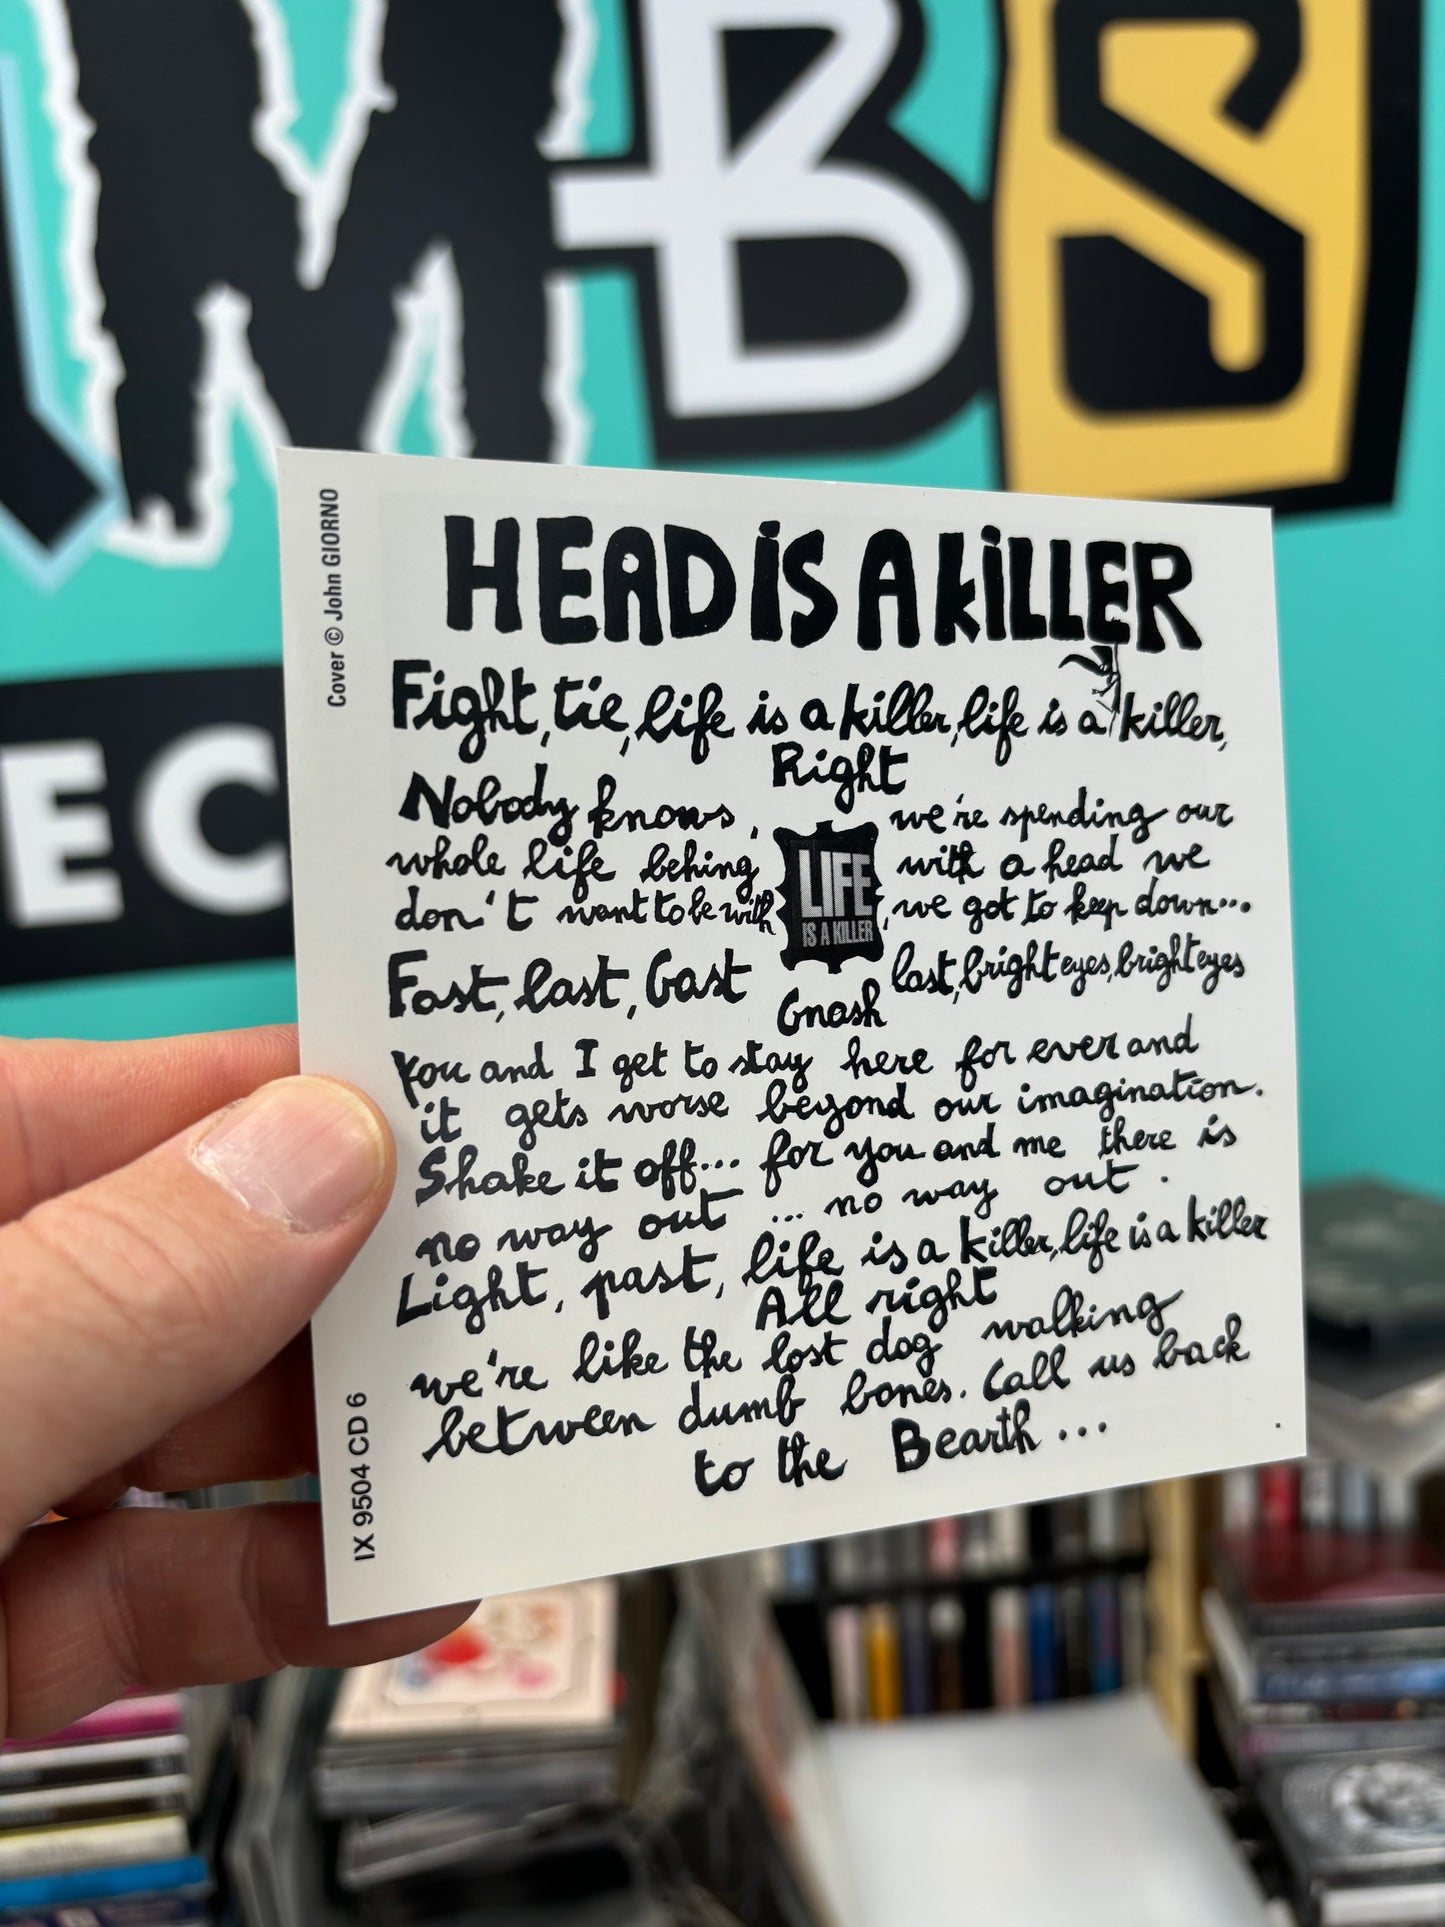 MBS
EC
Cover © John GIORNO
HEAD iS A KiLLER
Fight, tie, life is a killer, life is a killer,
Right
Nobody knows, we're spending our
whole life behing with a head we
don't want to be with, we got to keep down...
LIFE
IS A KILLER
Fast, last, Gast last, bright eyes, bright eyes
Gnash
You and I get to stay here for ever and
it gets worse beyond our imagination.
Shake it off... for you and me there is
no way out ... no way out.
Light, past, life is a killer, life is a killer
All right
we're like the lost dog walking
between dumb bones. Call us back
to the Bearth...
IX 9504 CD 6